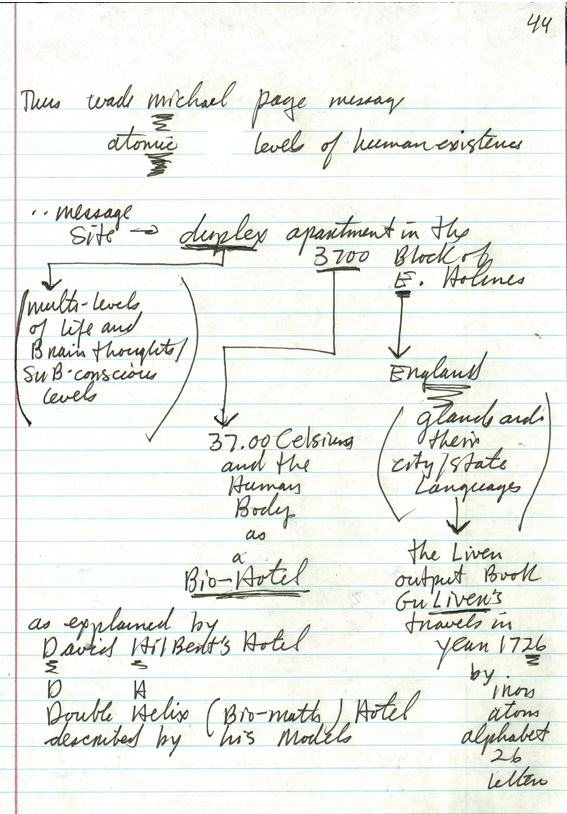 44
Thus wade michael page message
atomic levels of human existence
.. message
site → duplex apartment in the
3700 Block of
E. Holmes
(multi-levels
of life and
Brain thoughts/
SUB-conscious
levels)
England
(glands and
their
city/state
languages)
37.00 Celsius
and the
Human
Body
as
a
Bio-Hotel
the Liver
output Book
GuLiver's
travels in
year 1726
by
iron
atom
alphabet
26
letters
as explained by
David HilBert's Hotel
D H
Double Helix (Bio-math) Hotel
described by his models